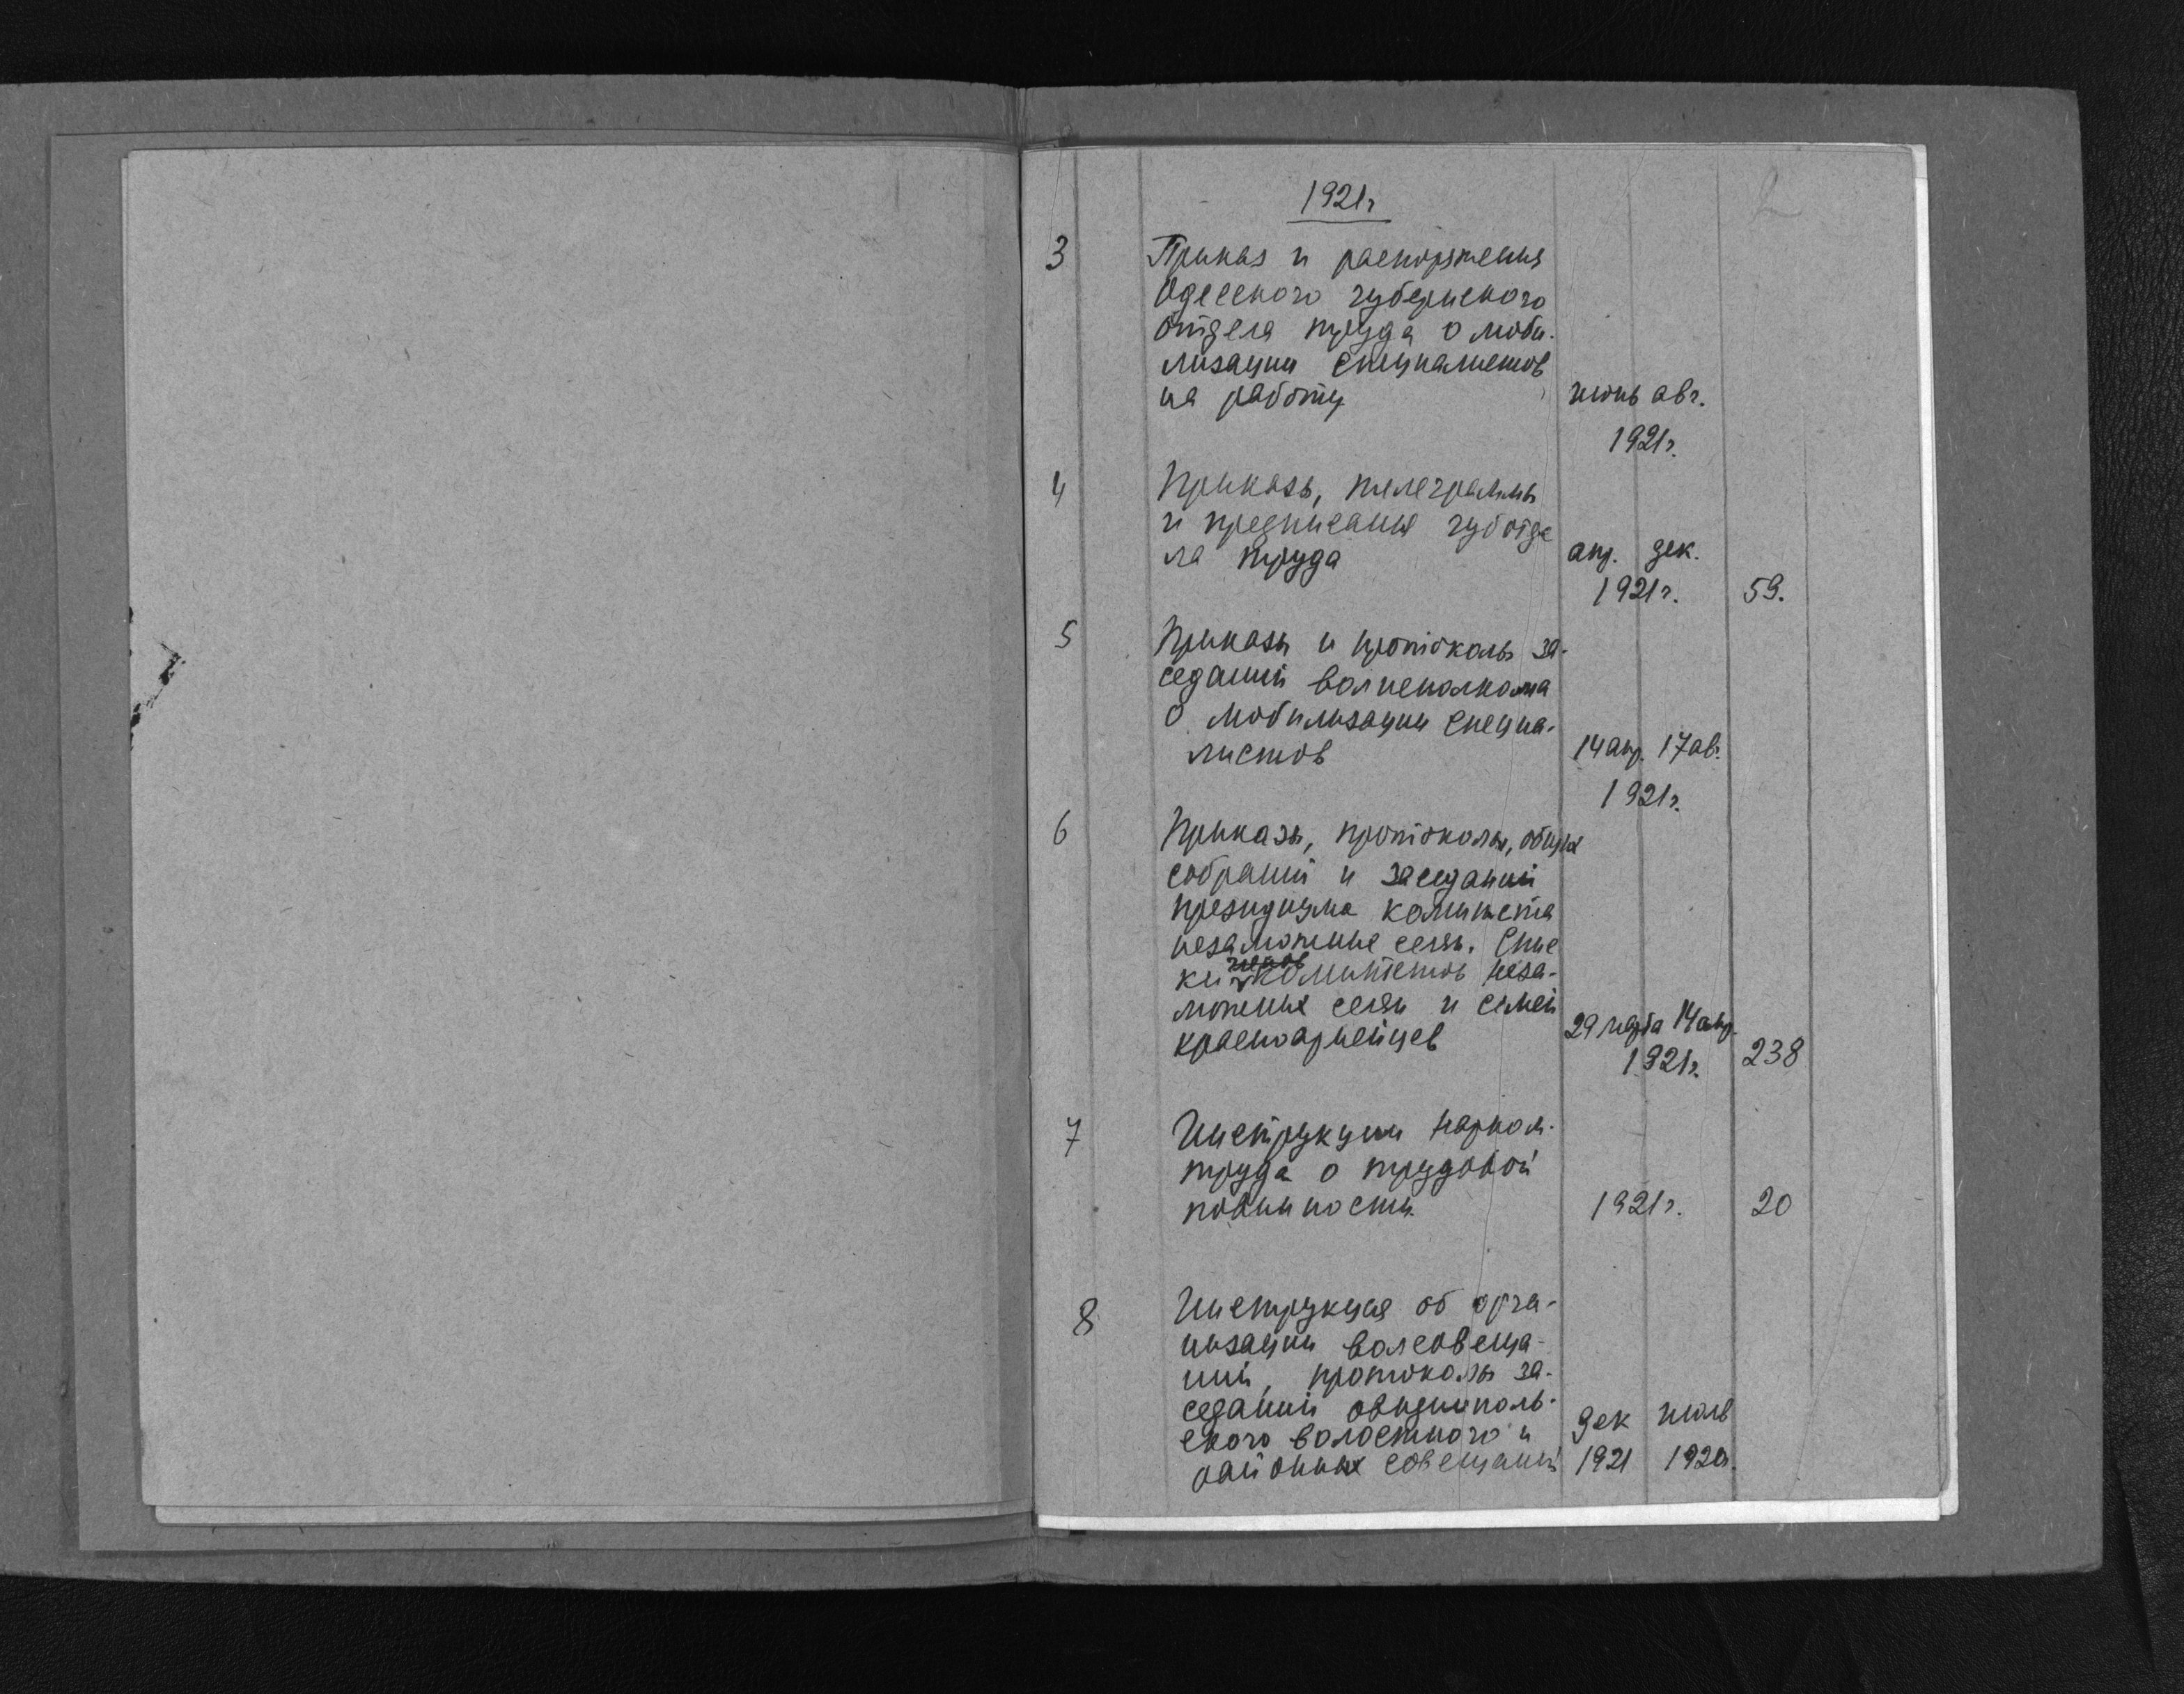 2
1921г
3 Приказ и распоряжения
Одесского губернского
отдела труда о моби-
лизации специалистов
на работу июнь авг.
1921г.
4 Приказы, телеграммы
и предписания губотде
ла труда апр. дек.
1921г. 59.
5 Приказы и протоколы за-
седаний волисполкома
о мобилизации специа-
листов 14 апр. 17 авг.
1921г.
6 Приказы, протоколы, общих
собраний и заседаний
президиума комитета
незаможные селян. Спис
ки членов комитетов неза-
можных селян и семей
красноармейцев 29 марта 14 апр.
1921г. 238
7 Инструкции нарком-
труда о трудовой
повинности 1921г. 20
8 Инструкция об орга-
низации волсовеща-
ний, протоколы за-
седаний овидиополь-
ского волостного и дек июль
районных совещаний 1921